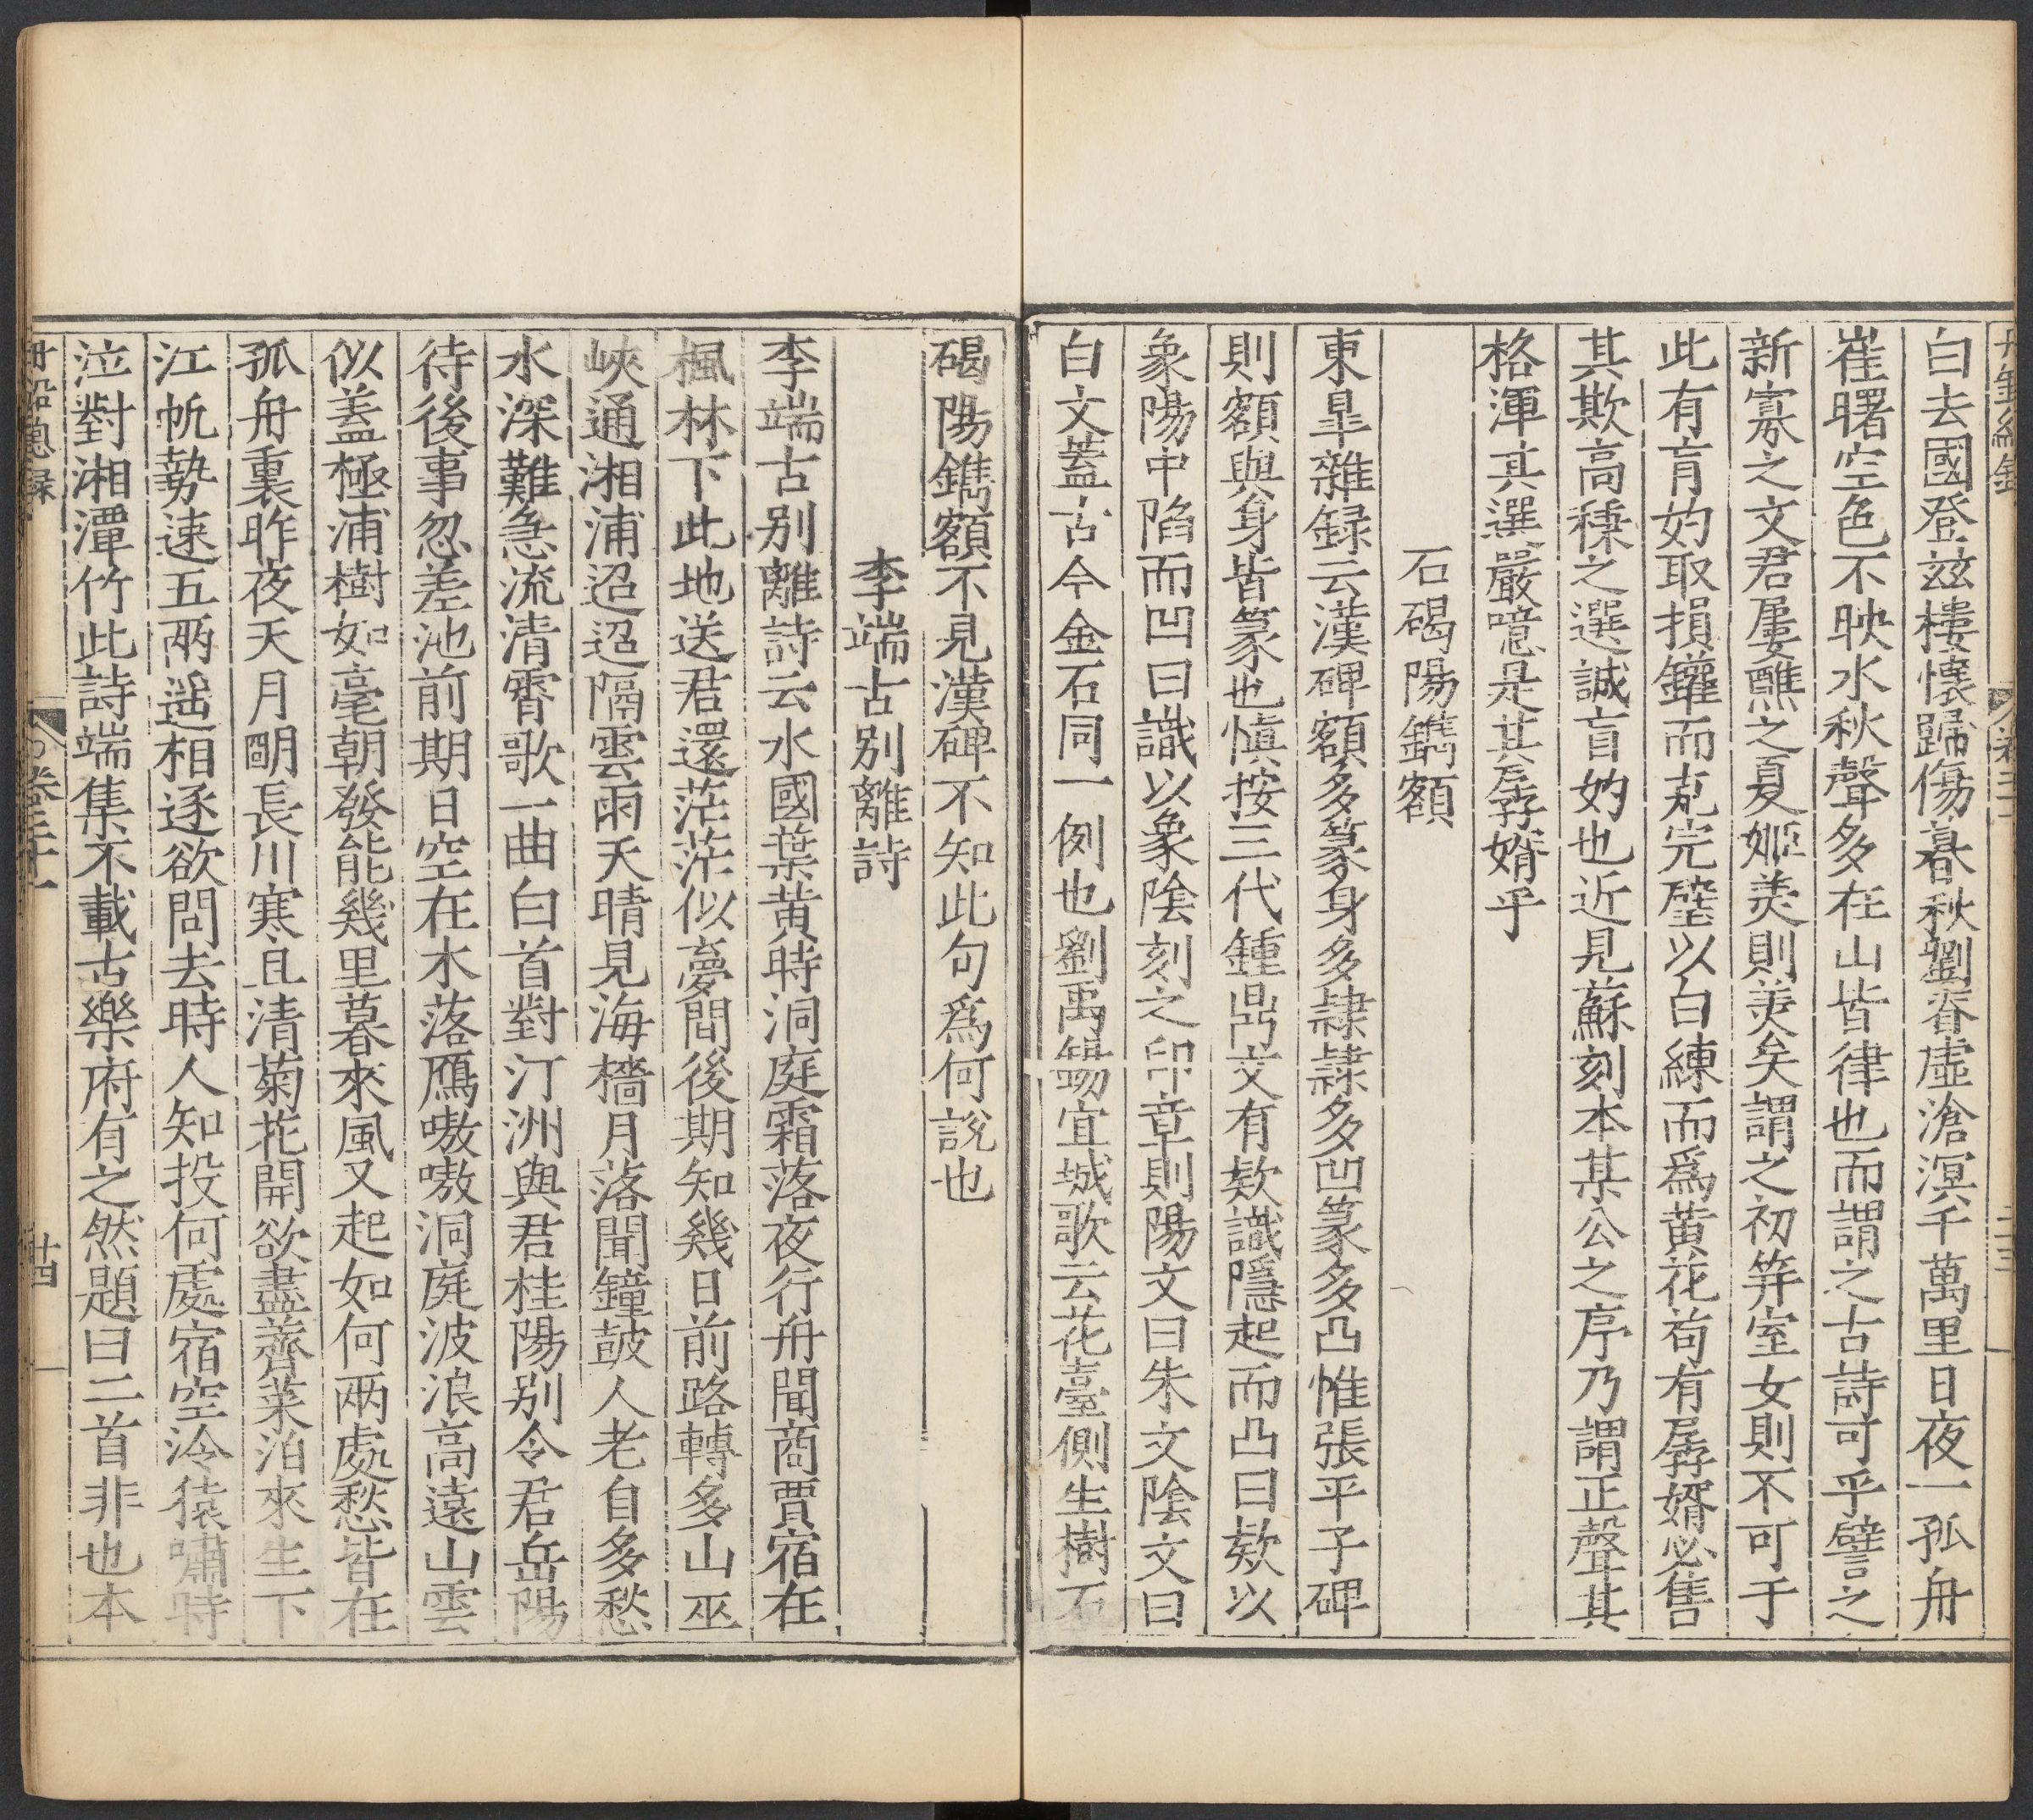 白去國登兹樓懷歸傷暮秋劉眘虛滄溟千萬里日夜一孤舟
崔曙空色不映水秋聲多在山皆律也而謂之古詩可乎譬之
新寡之文君屢醮之夏姬美則美矣謂之初笄室女則不可于
此有盲妁取損罐而充完璧以白練而爲黄花苟有孱婿必售
其欺高棅之選誠盲妁也近見蘇刻本某公之序乃謂正聲其
格渾其選嚴噫是其孱婿乎
石碣陽鐫額
東臯雜録云漢碑額多篆身多隷隷多凹篆多凸惟張平子碑
則額與身皆篆也愼按三代鍾鼎文有欵識隱起而凸曰欵以
象陽中陷而凹曰識以象陰刻之印章則陽文曰朱文陰文曰
白文蓋古今金石同一例也劉禹錫宜城歌云花臺側生樹石
碣陽鐫額不見漢碑不知此句爲何說也
李端古别離詩
李端古别離詩云水國葉黄時洞庭霜落夜行舟聞商賈宿在
楓林下此地送君還茫茫似夢間後期知幾日前路轉多山巫
峽通湘浦迢迢隔雲雨天晴見海檣月落聞鐘鼓人老自多愁
水深難急流清宵歌一曲白首對汀洲與君桂陽别令君岳陽
待後事忽差池前期日空在木落鴈嗷嗷洞庭波浪高遠山雲
似蓋極浦樹如毫朝發能幾里暮來風又起如何兩處愁皆在
孤舟裏昨夜天月明長川寒且清菊花開欲盡薺菜泊來生下
江帆勢速五兩遥相逐欲問去時人知投何處宿空泠猿嘯時
泣對湘潭竹此詩端集不載古樂府有之然題曰二首非也本
丹鉛總録
卷二十一
廿四